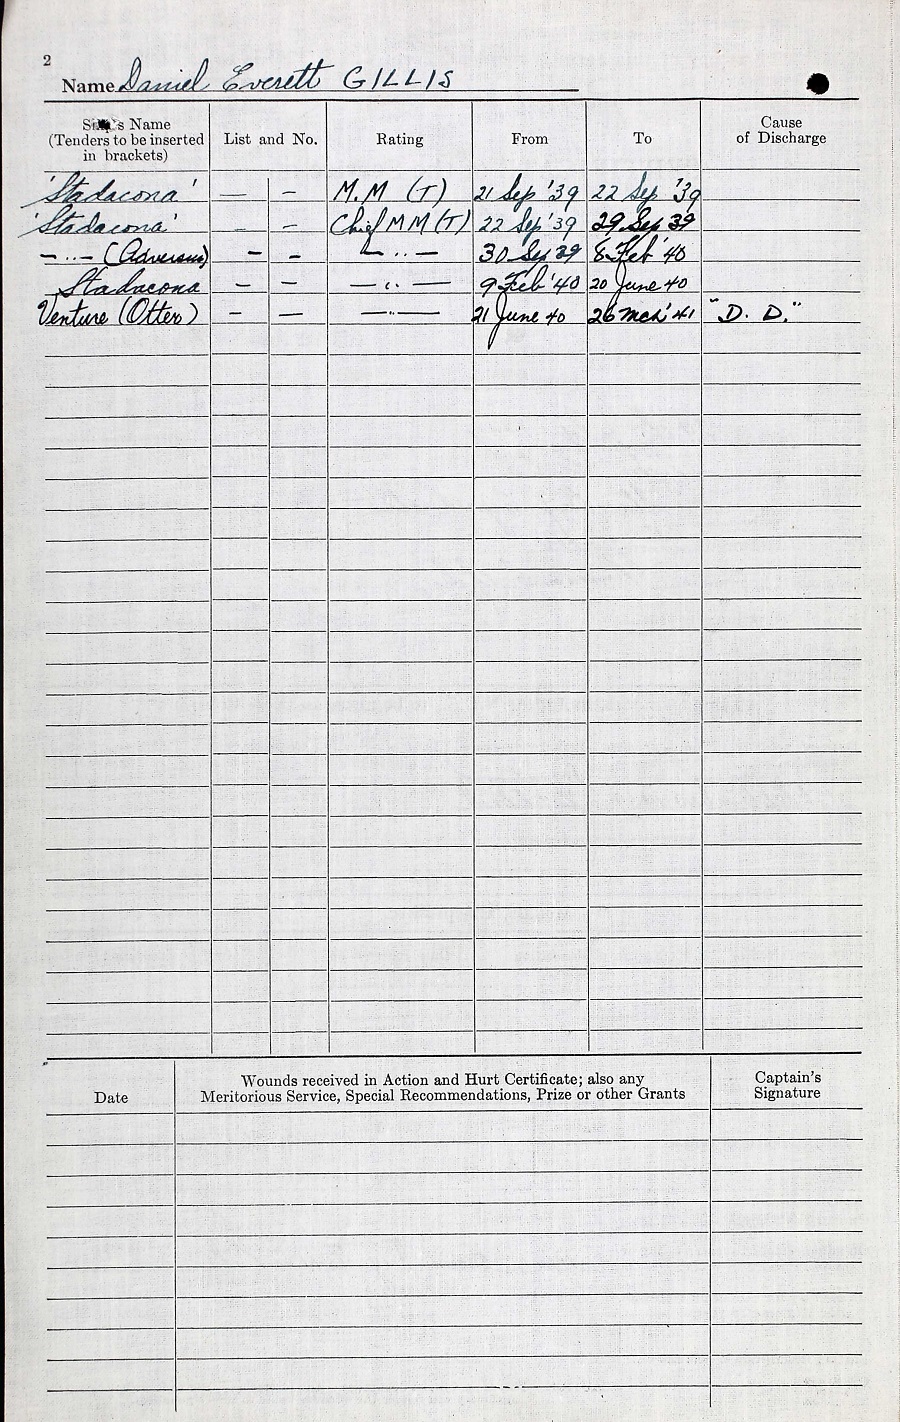 2
Name Daniel Everett GILLIS
Ship's Name
(Tenders to be inserted
in brackets)
List and No.
Rating
From
To
Cause
of Discharge
'Stadacona' — — M.M (T) 21 Sep '39 22 Sep '39
'Stadacona' — — Chief M M (T) 22 Sep '39 29 Sep 39
— " — (Adversus) — — — " — 30 Sep 39 8 Feb '40
Stadacona — — — " — 9 Feb '40 20 June 40
Venture (Otter) — — — " — 21 June 40 26 Mch '41 "D. D."
Date
Wounds received in Action and Hurt Certificate; also any
Meritorious Service, Special Recommendations, Prize or other Grants
Captain's
Signature